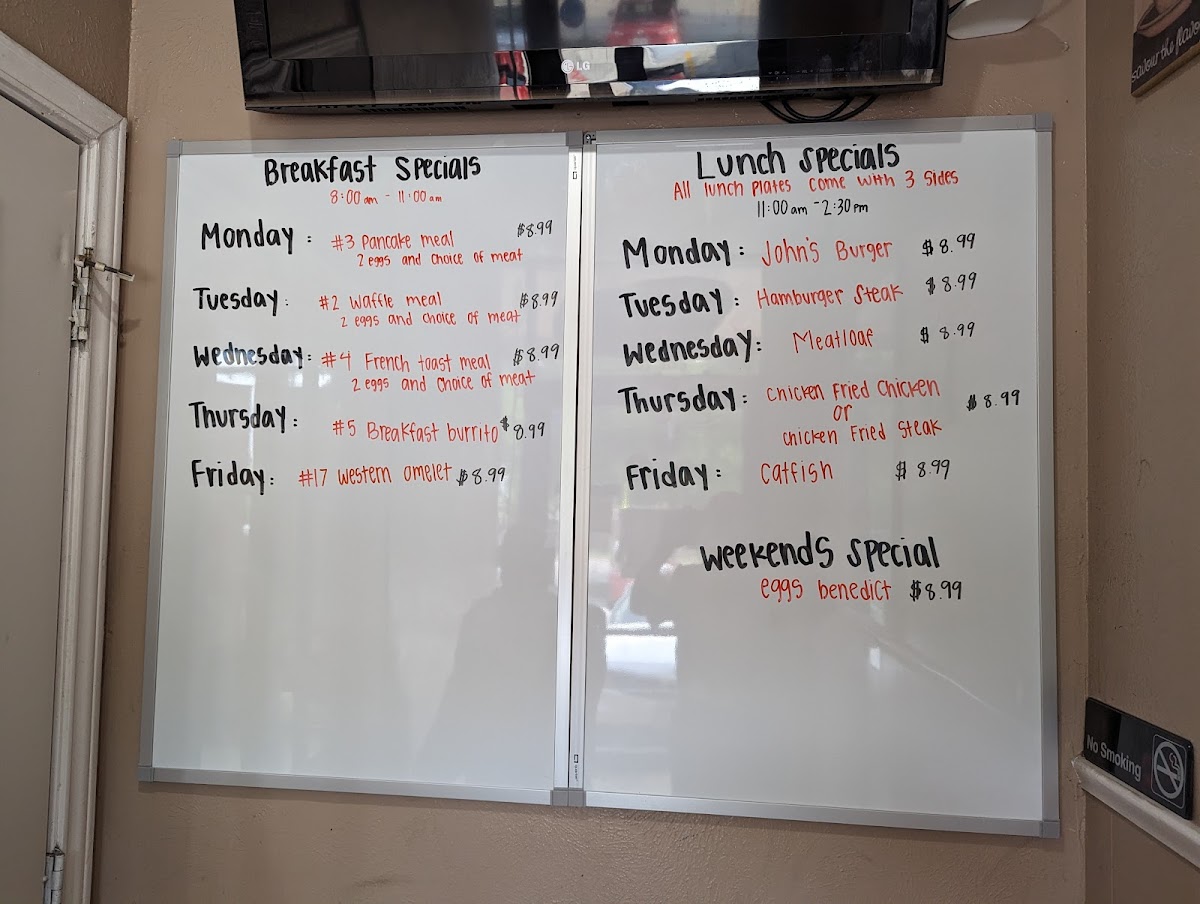 LG
savour the flavour
Breakfast Specials
8:00 am - 11:00 am
Monday : #3 Pancake meal $8.99
2 eggs and choice of meat
Tuesday : #2 Waffle meal $8.99
2 eggs and choice of meat
Wednesday : #4 French toast meal $8.99
2 eggs and choice of meat
Thursday : #5 Breakfast burrito $8.99
Friday : #17 western omelet $8.99
Lunch specials
All lunch plates come with 3 sides
11:00 am - 2:30 pm
Monday : John's Burger $8.99
Tuesday : Hamburger Steak $8.99
Wednesday : Meatloaf $8.99
Thursday : Chicken Fried Chicken $8.99
or
chicken Fried Steak
Friday : Catfish $8.99
Weekends special
eggs benedict $8.99
No Smoking